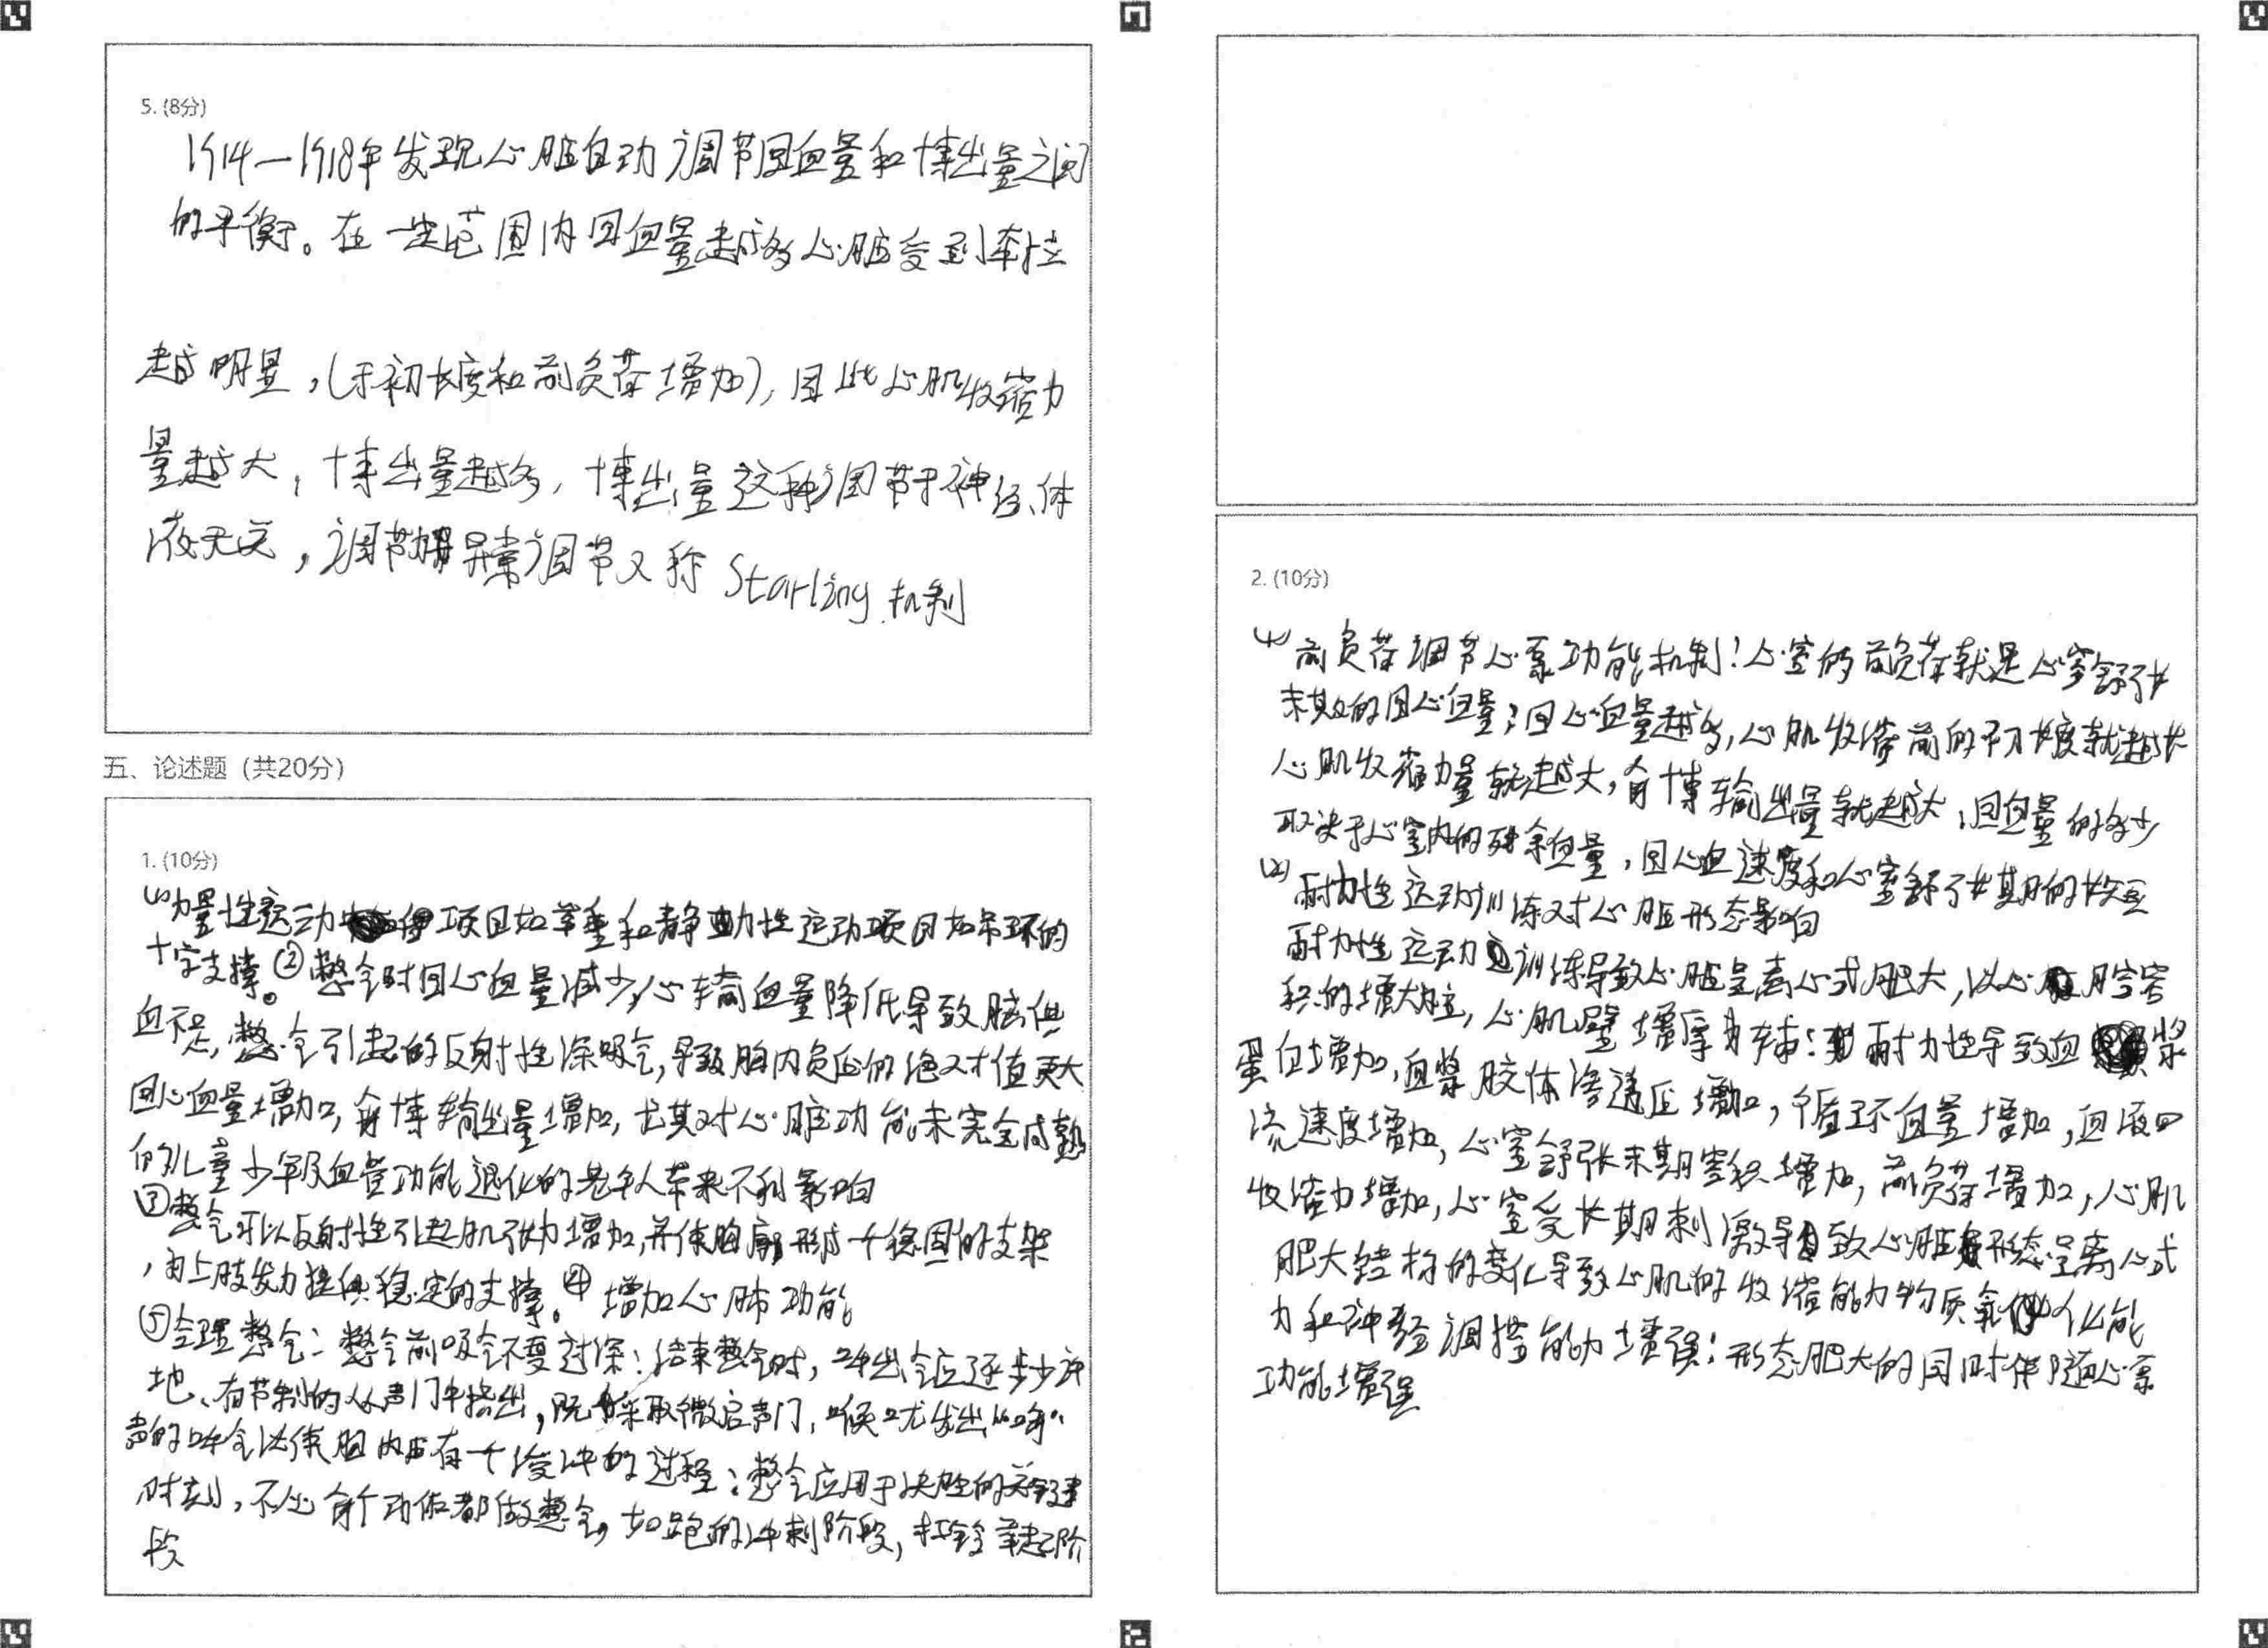 5. (8分)
1914—1918年发现心脏自动调节回血量和搏出量之间
的平衡。在一定范围内回血量越多心脏受到牵拉
越明显，(于初长度和前负荷增加)，因此心肌收缩力
量越大，搏出量越多，搏出量这种调节于神经、体
液无关，调节异常调节又称 Starling 机制
五、论述题（共20分）
1. (10分)
(1)力量性运动项目如举重和静力性运动项目如吊环的
十字支撑。②憋气时回心血量减少，心输血量降低导致脑供
血不足，憋气引起的反射性深吸气，导致胸内负压的绝对值更大
回心血量增加，每搏输出量增加，尤其对心脏功能未完全成熟
的儿童少年及血管功能退化的老年人带来不利影响
③憋气可以反射性引起肌张力增加，并使胸廓形成一个稳固的支架
，为上肢发力提供稳定的支撑。④增加心肺功能
⑤合理憋气：憋气前吸气不要过深；结束憋气时，呼出气应逐步少许
地、有节制的从声门中挤出，既采取微启声门，喉咙发出“嗨”
声的呼气法使胸内压有一个缓冲的过程；憋气应用于决胜的关键
时刻，不必每个动作都做憋气，如跑的冲刺阶段，杠铃举起阶
段
2. (10分)
(1) 前负荷调节心泵功能机制：心室的前负荷就是心室舒张
末期的回心血量；回心血量越多，心肌收缩前的初长度就越长
心肌收缩力量就越大，每搏输出量就越大，回血量的多少
取决于心室内的残余血量，回心血速度和心室舒张期的长短
(2) 耐力性运动训练对心脏形态影响
耐力性运动训练导致心脏呈离心式肥大，以心腔容
积的增大为主，心肌壁增厚为辅；耐力性导致血浆
蛋白增加，血浆胶体渗透压增加，循环血量增加，血液回
流速度增加，心室舒张末期容积增加，前负荷增加，心肌
收缩力增加，心室受长期刺激导致心脏形态呈离心式
肥大结构的变化导致心肌的收缩能力物质氧化能
力和神经调控能力增强；形态肥大的同时伴随心泵
功能增强